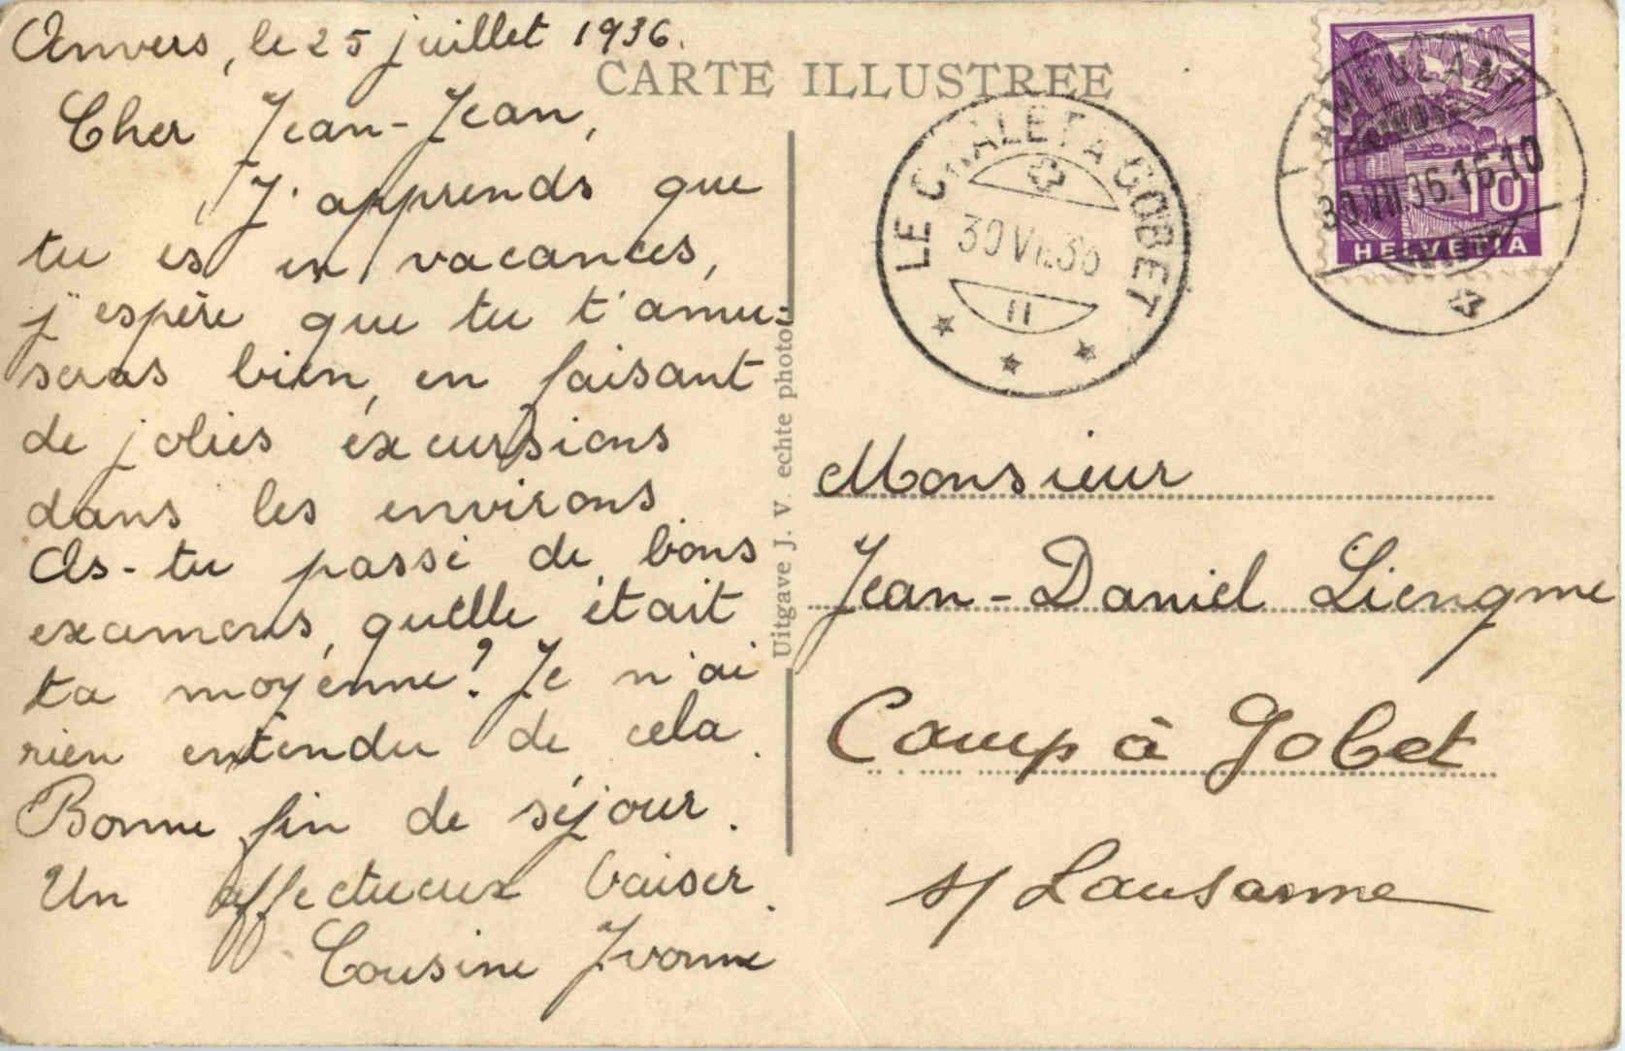 Anvers, le 25 juillet 1936.
CARTE ILLUSTREE
Cher Jean-Jean,
J'apprends que
tu es en vacances,
j'espère que tu t'amu-
seras bien, en faisant
de jolies excursions
dans les environs.
As-tu passé de bons
examens, quelle était
ta moyenne? Je n'ai
rien entendu de cela.
Bonne fin de séjour.
Un affectueux baiser.
Cousine Yvonne
Uitgave J. V. echte photo
LE CHALET A GOBET
30 VII.36
II
AMBULANT
30.VII.36.16-10
10
HELVETIA
Monsieur
Jean-Daniel Liengme
Camp à Gobet
s/ Lausanne